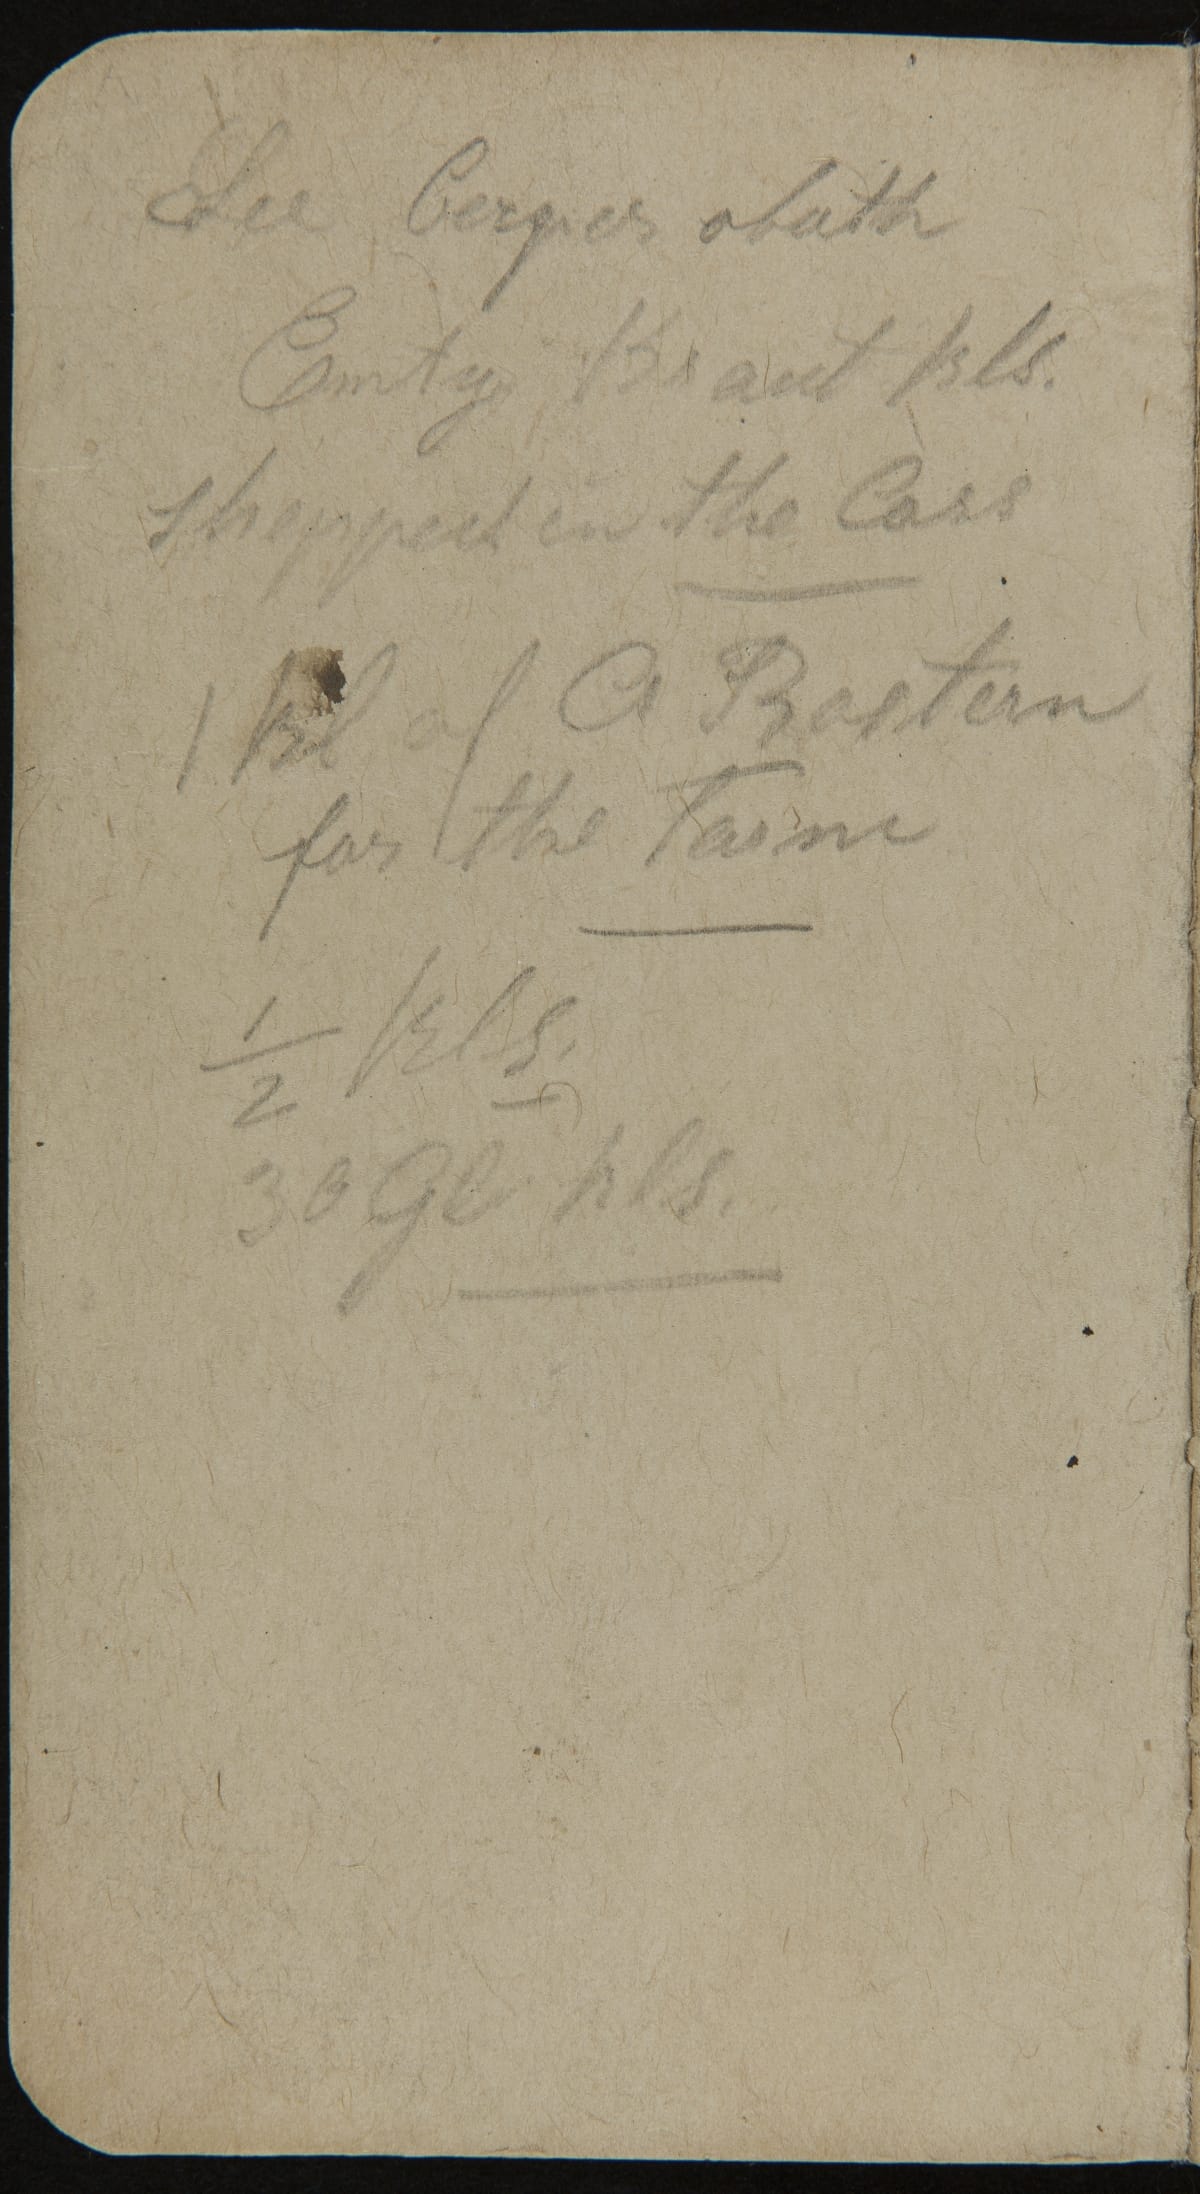 See Berger abath
Emty Kraut kls.
shepped in the Cars
1 kl of A Rostern
for the Farm
1/2 kls.
30 Gl kls.